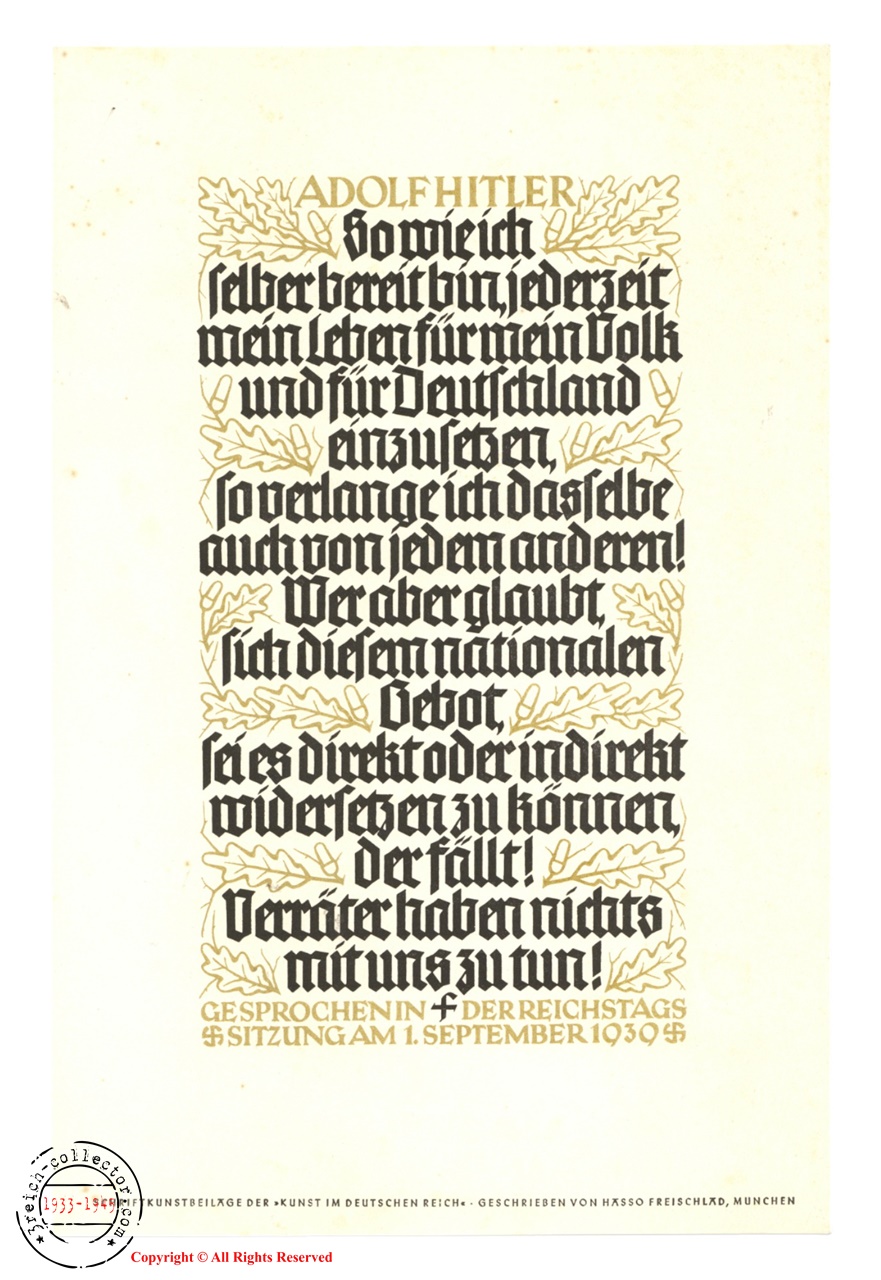 ADOLF HITLER
So wie ich
selber bereit bin, jederzeit
mein Leben für mein Volk
und für Deutschland
einzusetzen,
so verlange ich dasselbe
auch von jedem anderen!
Wer aber glaubt,
sich diesem nationalen
Gebot,
sei es direkt oder indirekt
widersetzen zu können,
der fällt!
Verräter haben nichts
mit uns zu tun!
GESPROCHEN IN DER REICHSTAGS
SITZUNG AM 1. SEPTEMBER 1939
SCHRIFTKUNSTBEILAGE DER »KUNST IM DEUTSCHEN REICH« - GESCHRIEBEN VON HASSO FREISCHLAD, MÜNCHEN
3reich-collector.com
1933-1945
Copyright © All Rights Reserved